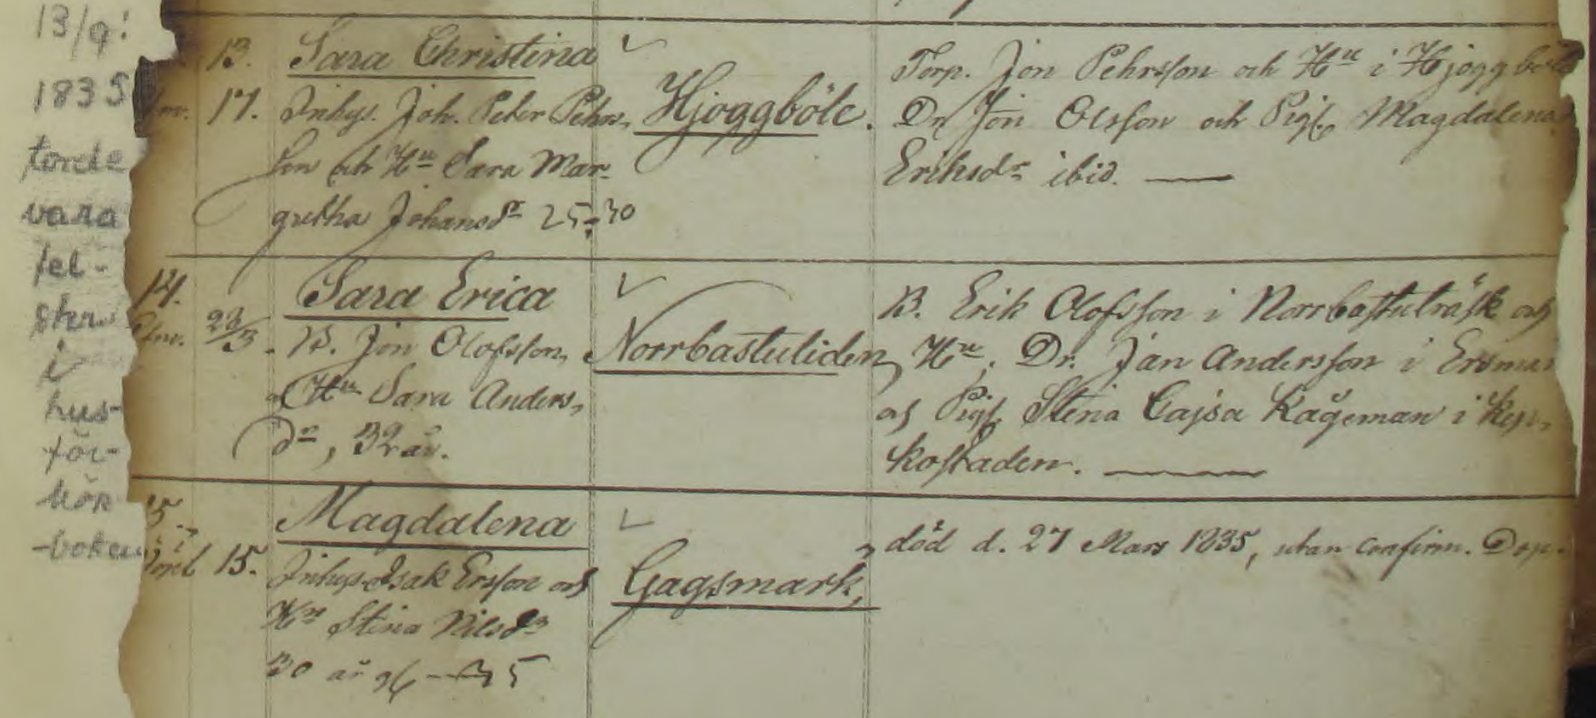 13/9:
1835
torde
vara
fel-
skr.
i
hus-
för-
hör
-boken
13. Sara Christina
17. Inhys. Joh. Peter Pehrs-
son och Hu Sara Mar-
gretha Johansdr 25-30
Hjoggböle.
Torp. Jon Pehrsson och Hu i Hjoggböle
Dr Jon Olsson och Pig. Magdalena
Eriksdr ibid. —
14.
23/3. Sara Erica
B. Jon Olofsson,
o Hu Sara Anders-
dr, 32 år.
Norrbastuliden
B. Erik Olofsson i Norrbastuträsk och
Hu. Dr. Jan Andersson i Ersmar
och Pig. Stina Cajsa Kågeman i
kostaden. —
15
15. Magdalena
Inhys Isak Ersson och
Hu Stina Nilsdr
30 år
Gagsmark,
död d. 27 Mars 1835, utan confirm. Dop.